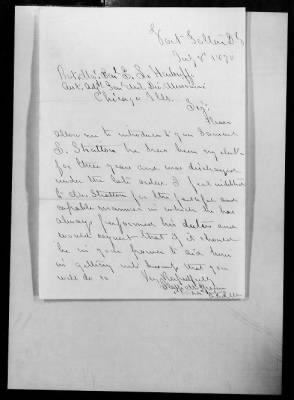 Fort Sully D.T.
July 8" 1870
Bvt. Maj. Genl. L. Hartsuff
Asst. Adjt. Genl. Mil. Div. Missouri
Chicago Ills.
Please
allow me to introduce to you Samuel
L. Stratton he has been my clerk
for three years and was discharged
under the late order. I feel indebted
to Mr Stratton for the faithful and
capable manner in which he has
always performed his duties and
would request that if it should
be in your power to aid him
in getting into business that you
will do so
Very Respectfully